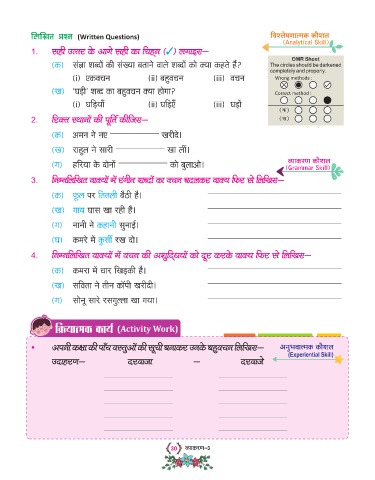 लिखित प्रश्न (Written Questions)
विश्लेषणात्मक कौशल
(Analytical Skill)
1. सही उत्तर के आगे सही का चिह्न (✓) लगाइए—
(क) संज्ञा शब्दों की संख्या बताने वाले शब्दों को क्या कहते हैं?
(i) एकवचन (ii) बहुवचन (iii) वचन
(ख) 'घड़ी' शब्द का बहुवचन क्या होगा?
(i) घड़ियाँ (ii) घड़िएँ (iii) घड़ों
OMR Sheet
The circles should be darkened
completely and properly.
Wrong methods :
Correct method :
(क)
(ख)
2. रिक्त स्थानों की पूर्ति कीजिए—
(क) अमन ने नए खरीदे।
(ख) राहुल ने सारी खा लीं।
(ग) हरिया के दोनों को बुलाओ।
व्याकरण कौशल
(Grammar Skill)
3. निम्नलिखित वाक्यों में रंगीन शब्दों का वचन बदलकर वाक्य फिर से लिखिए—
(क) फूल पर तितली बैठी है।
(ख) गाय घास खा रही है।
(ग) नानी ने कहानी सुनाई।
(घ) कमरे में कुर्सी रख दो।
4. निम्नलिखित वाक्यों में वचन की अशुद्धियों को दूर करके वाक्य फिर से लिखिए—
(क) कमरा में चार खिड़की है।
(ख) सविता ने तीन कॉपी खरीदी।
(ग) सोनू सारे रसगुल्ला खा गया।
क्रियात्मक कार्य (Activity Work)
• अपनी कक्षा की पाँच वस्तुओं की सूची बनाकर उनके बहुवचन लिखिए—
अनुभवात्मक कौशल
(Experiential Skill)
उदाहरण— दरवाजा — दरवाजे
30 व्याकरण-3